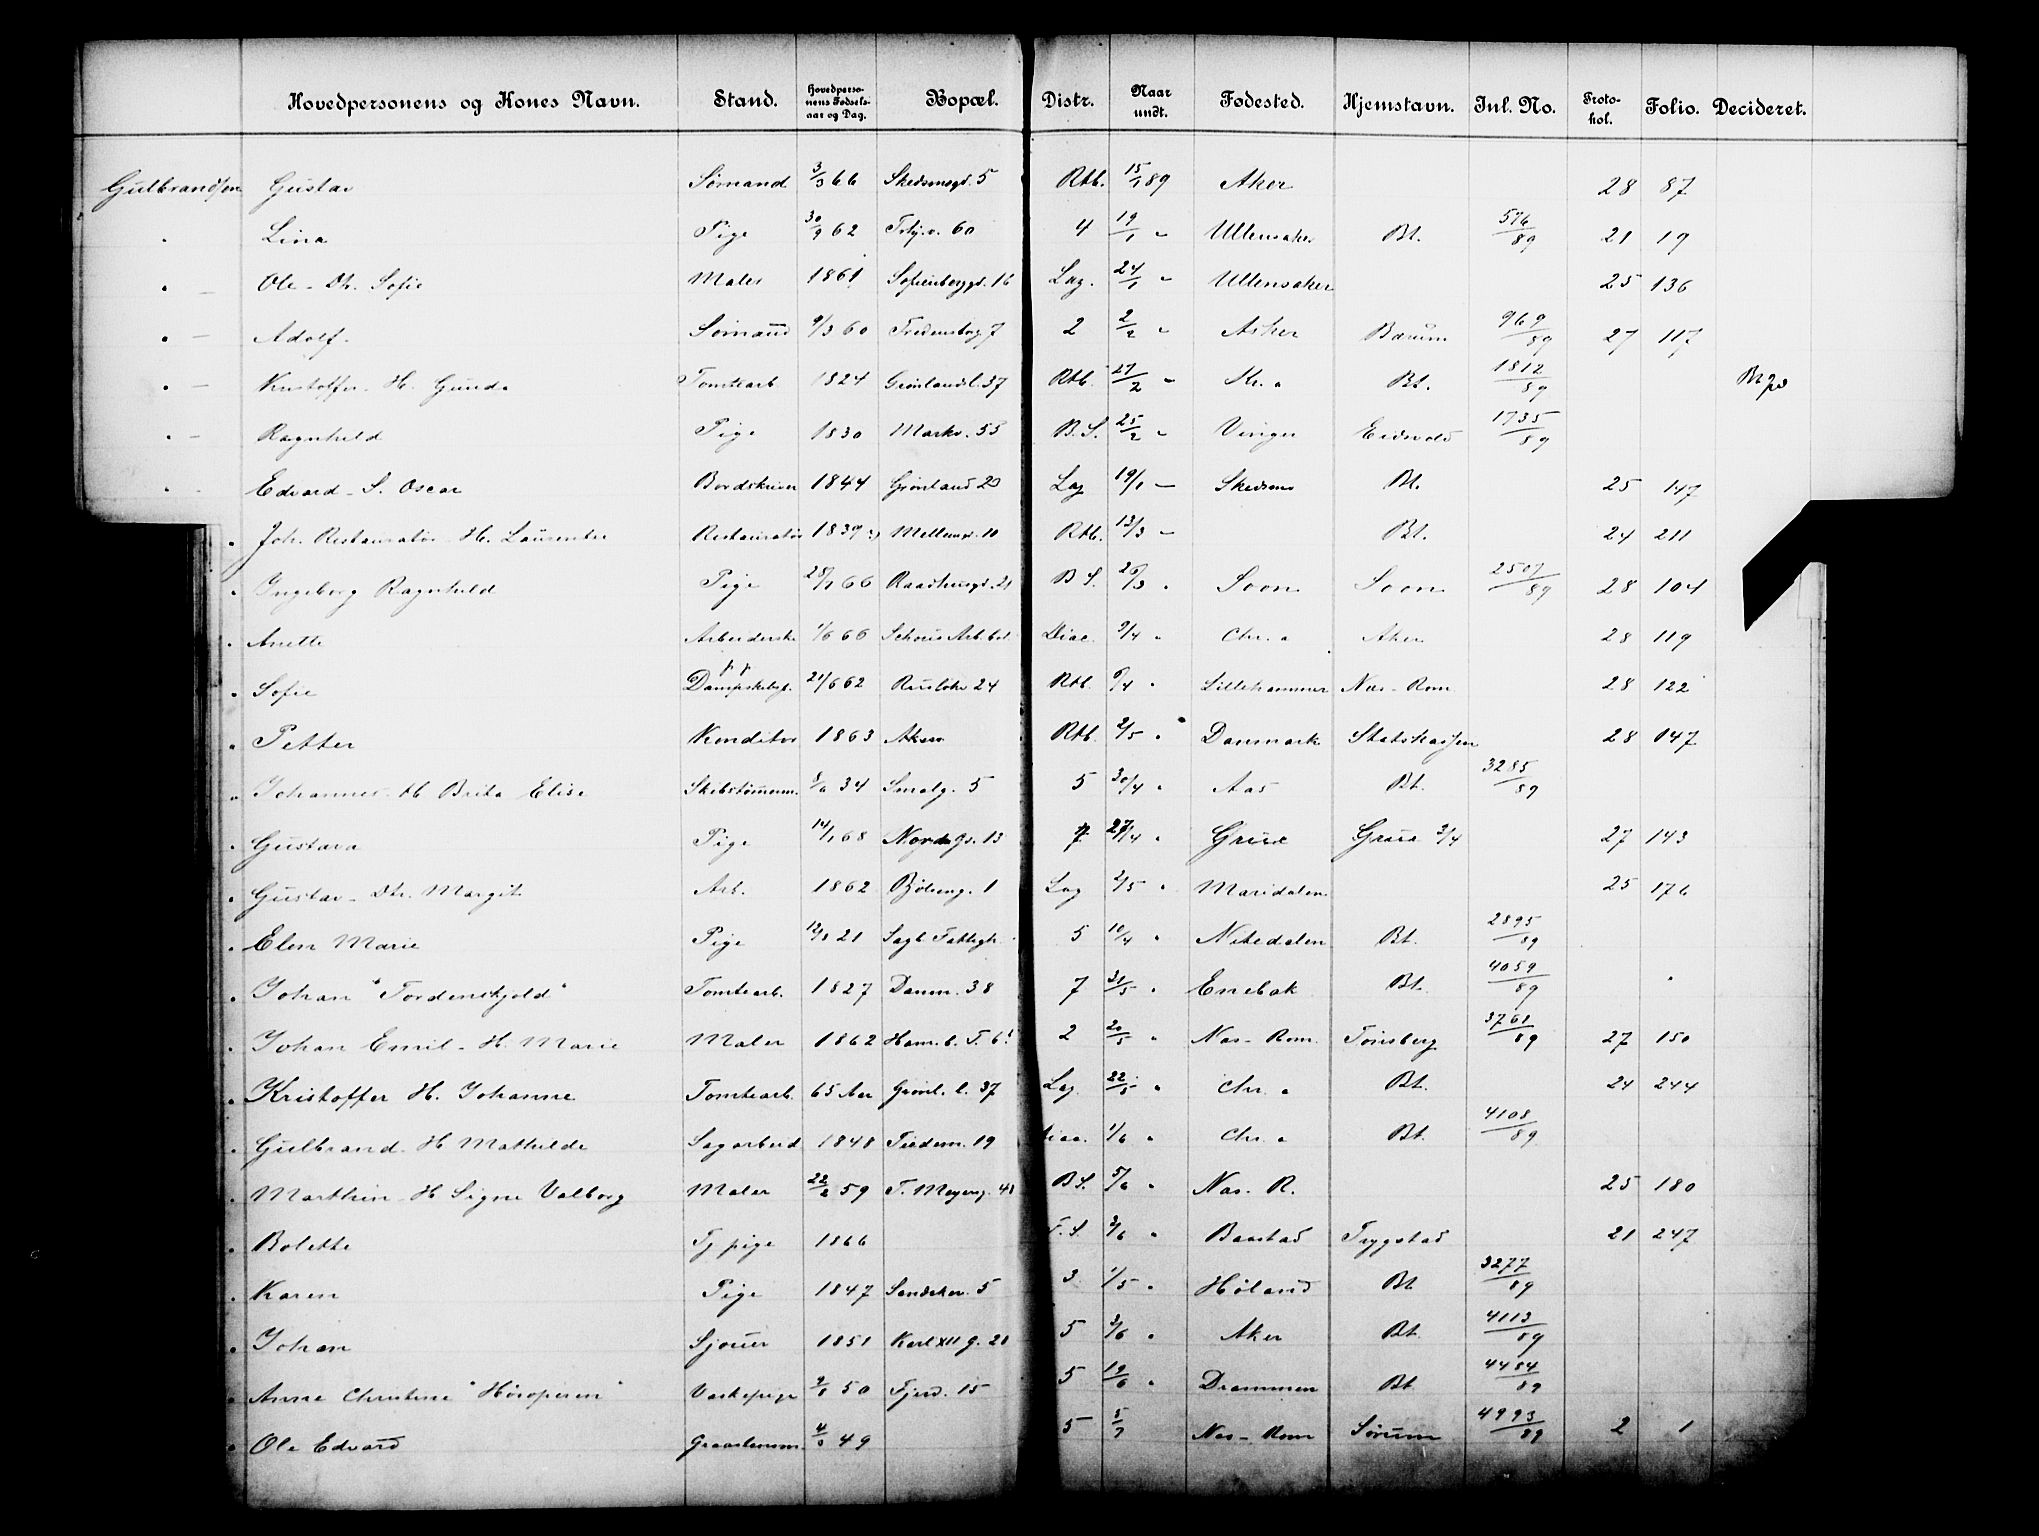 Hovedpersonens og Kones Navn. Stand. Hovedpersonens Fødselsaar og Dag. Bopæl. Distr. Naar undt. Fødested. Hjemstavn. Jnl. No. Protokol. Folio. Decideret.
Gulbrandsen Gustav Sømand 3/3 66 Skedsmogd. 5 Rtb. 15/1 89 Aker 28 87
" Lina Pige 30/9 62 60 4 19/1 " Ullensaker Bt. 576/89 21 19
" - Ole - Dt. Sofie Maler 1861 Sofienberggd. 16 Lag. 24/1 " Ullensaker 25 136
" - Adolf. Sømand 9/3 60 Fredensbog 7 2 2/2 " Asker Bærum 969/89 27 117
" - Kristoffer - H. Gunda Tomtearb 1824 Grønlandsl. 37 Rtb. 27/2 " Kr. a Bt. 1812/89
" - Ragnhild Pige 1830 Markv. 55 B.S. 25/2 " Vinger Eidsvold 1735/89
" - Edvard - S. Oscar Bordskriver 1844 Grønland 20 Lag 19/1 - Skedsmo Bt. 25 147
" Joh. Restauratør - H. Laurentse Restauratør 1839 Møllergd. 10 Rtb. 13/3 - Bt. 24 211
" Ingeborg Ragnhild Pige 28/1 66 Raadhusgd. 21 B S. 26/3 " Soon Soon 2507/89 28 104
" Anette Arbeiderske 1/6 66 Schous Arb. bol. Diac. 2/4 " Chr. a Aker 28 119
" Sofie Dampskibsp. 21/6 62 Rusløkv 24 Rtb. 6/4 " Lillehammer Næs - Rom 28 122
" Petter Konditor 1863 Aker Rtb. 2/5 " Danmark Statskassen 28 147
" Johannes - H Brita Elise Skibstømmerm. 34 Smalg. 5 5 30/4 " Aas Bt. 3285/89
" Gustava Pige 14/1 68 Nordgs. 13 7 27/4 " Grue Grue 3/4 27 143
" Gustav - Dtr. Margit Arb. 1862 1 Lag 2/5 " Maridalen 25 176
" Elen Marie Pige 21 Sagb. Fattigh. 5 10/4 " Nitedalen Bt. 2895/89
" Johan "Tordenskjold" Tomtearb. 1827 Danm. 38 7 31/5 " Enebak Bt. 4059/89
" Johan Emil - H. Marie Maler 1862 2 20/5 " Næs - Rom. Tønsberg 3761/89 27 150
" Kristoffer H. Johanne Tomtearb. 65 Aar Grønl. l. 37 Lag. 22/5 " Chr. a Bt. 24 244
" Gulbrand - H Mathilde Sagarbeid 1848 Tiedem. 19 1/6 " Chr. a Bt. 4108/89
" Marthin - H Signe Valborg Maler 22/2 59 T. Meyersg. 41 B S. 5/6 " Næs - R. 25 180
" Bolette Tj pige 1866 F. S. 3/6 " Baastad Trygstad 21 247
" Karen Pige 1847 Sandaker. 5 3 1/5 " Høland Bt 3277/89
" Johan Sjouer 1851 Karl XII g. 20 5 3/6 " Aker Bt. 4113/89
" Anne Christine "Høroperen" Vaskepige 50 Fjerd. 15 5 12/6 " Drammen Bt 4484/89
" Ole Edvard Graastensm. 49 5 5/7 Næs - Rom Sørum 4993/89 2 1